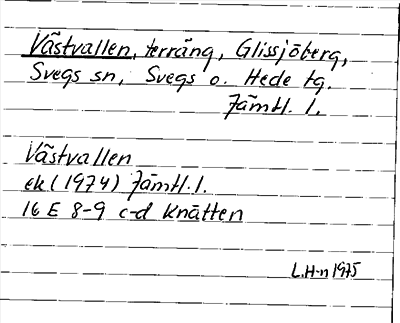 Västvallen, terräng, Glissjöberg,
Svegs sn, Svegs o. Hede tg.
Jämtl. l.
Västvallen
ek (1974) Jämtl. l.
16 E 8-9 c-d Knätten
L.H-n 1975